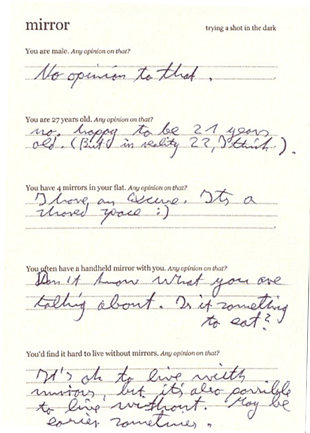 mirror
trying a shot in the dark
You are male. Any opinion on that?
No opinion to that.
You are 27 years old. Any opinion on that?
no. happy to be 21 years
old. (But in reality 22, I think).
You have 4 mirrors in your flat. Any opinion on that?
I have an excuse. It's a
shared space :)
You often have a handheld mirror with you. Any opinion on that?
Don't know what you are
talking about. Is it something
to eat?
You'd find it hard to live without mirrors. Any opinion on that?
It's ok to live with
mirrors, but it's also possible
to live without. May be
easier sometimes.